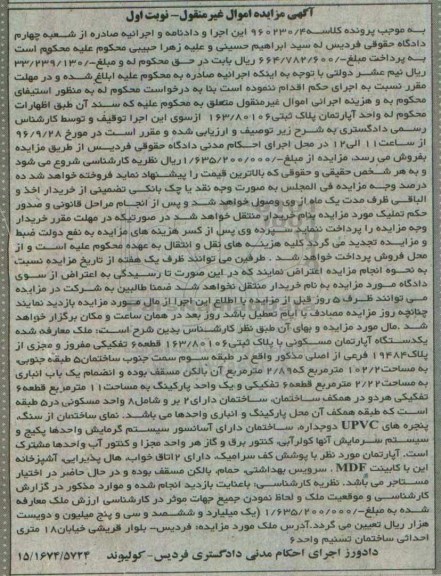 آگهی مزایده اموال غیرمنقول- نوبت اول
به موجب پرونده کلاسه ۹۶۰۲۳۰/۴ این اجرا و دادنامه و اجرائیه صادره از شعبه چهارم
دادگاه حقوقی فردیس له سید ابراهیم حسینی و علیه زهرا حبیبی محکوم علیه محکوم است
به پرداخت مبلغ/۶۶۴/۷۸۲/۶۰۰ ریال بابت در حق محکوم له و مبلغ/۳۳/۲۳۹/۱۳۰
ریال نیم عشر دولتی با توجه به اینکه اجرائیه صادره به محکوم علیه ابلاغ شده و در مهلت
مقرر نسبت به اجرای حکم اقدام ننموده است بنا به درخواست محکوم له به منظور استیفای
محکوم به و هزینه اجرائی اموال غیرمنقول متعلق به محکوم علیه که سند آن طبق اظهارات
محکوم له واحد آپارتمان پلاک ثبتی ۱۶۳/۸۰۱۰۶ ازسوی این اجرا توقیف و توسط کارشناس
رسمی دادگستری به شرح زیر توصیف و ارزیابی شده و مقرر است در مورخ ۹۶/۹/۲۸
از ساعت ۱۱ الی ۱۲ در محل اجرای احکام مدنی دادگاه حقوقی فردیس از طریق مزایده
بفروش می رسد. مزایده از مبلغ/۱/۶۳۵/۲۰۰/۰۰۰ ریال نظریه کارشناسی شروع می شود
و به هر شخص حقیقی و حقوقی که بالاترین قیمت را پیشنهاد نماید فروخته خواهد شد ده
درصد وجه مزایده فی المجلس به صورت وجه نقد یا چک بانکی تضمینی از خریدار اخذ و
الباقی ظرف مدت یک ماه از وی وصول خواهد شد و پس از انجام مراحل قانونی و صدور
حکم تملیک مورد مزایده بنام خریدار منتقل خواهد شد در صورتیکه در مهلت مقرر خریدار
وجه مزایده را پرداخت ننماید سپرده وی پس از کسر هزینه های مزایده به نفع دولت ضبط
و مزایده تجدید می گردد کلیه هزینه های نقل و انتقال به عهده محکوم علیه است و از
محل فروش پرداخت خواهد شد. طرفین می توانند ظرف یک هفته از تاریخ مزایده نسبت
به نحوه انجام مزایده اعتراض نمایند که در این صورت تا رسیدگی به اعتراض از سوی
دادگاه مورد مزایده به نام خریدار منتقل نخواهد شد ضمنا طالبین به شرکت در مزایده
می توانند ظرف ۵ روز قبل از مزایده با اطلاع این اجرا از مال مورد مزایده بازدید نمایند
چنانچه روز مزایده مصادف با ایام تعطیل باشد روز بعد در همان ساعت و مکان برگزار خواهد
شد. مال مورد مزایده و بهای آن طبق نظر کارشناس بدین شرح است: ملک معارفه شده
یکدستگاه آپارتمان مسکونی با پلاک ثبتی ۱۶۳/۸۰۱۰۶ قطعه ۶ تفکیکی مفروز و مجزی از
پلاک ۱۹۴۸۴ فرعی از اصلی مذکور واقع در طبقه سوم سمت جنوب ساختمان ۵ طبقه جنوبی،
به مساحت ۱۰۲/۲ مترمربع که ۲/۸۹ مترمربع آن بالکن مسقف بوده و انضمام یک باب انباری
به مساحت ۲/۲۲ مترمربع قطعه ۶ تفکیکی و یک واحد پارکینگ به مساحت ۱۱ مترمربع قطعه ۶
تفکیکی هردو در همکف ساختمان، ساختمان دارای ۲ بر و شامل ۸ واحد مسکونی در ۵ طبقه
است که طبقه همکف آن محل پارکینگ و انباری واحدها می باشد. نمای ساختمان از سنگ،
پنجره های UPVC دوجداره، ساختمان دارای آسانسور سیستم گرمایش واحدها پکیج و
سیستم سرمایش آنها کولرآبی، کنتور برق و گاز هر واحد مجزا و کنتور آب واحدها مشترک
است. آپارتمان مورد نظر با پوشش کف سرامیک، دارای ۲ اتاق خواب، هال پذیرایی، آشپزخانه
این با کابینت MDF، سرویس بهداشتی، حمام، بالکن مسقف بوده و در حال حاضر در اختیار
مستاجر می باشد. نظریه کارشناسی: باعنایت بازدید انجام شده و موارد مذکور در گزارش
کارشناسی و موقعیت ملک و لحاظ نمودن جمیع جهات موثر در کارشناسی ارزش ملک معارفه
شده به مبلغ/۱/۶۳۵/۲۰۰/۰۰۰ (یک میلیارد و ششصد و سی و پنج میلیون و دویست
هزار ریال تعیین می گردد. آدرس ملک مورد مزایده: فردیس- بلوار قریشی خیابان ۱۸ متری
احداثی ساختمان تسنیم واحد ۶
دادورز اجرای احکام مدنی دادگستری فردیس- کولیوند ۱۵/۱۶۷۳/۵۷۲۴